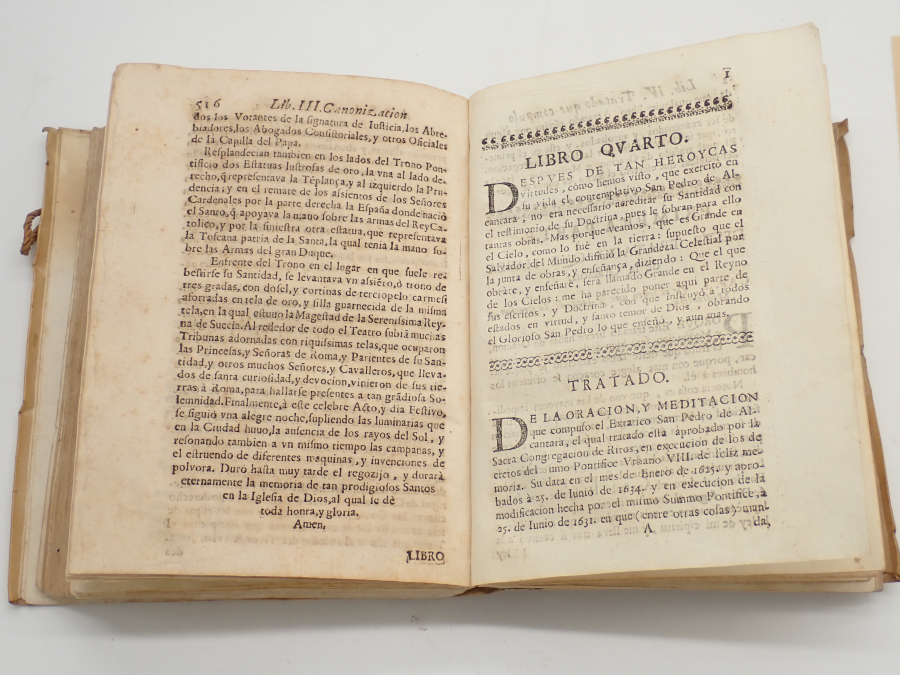 516 Lib. III. Canonizacion
dos los Votantes de la signatura de Iusticia, los Abre-
biadores, los Abogados Consistoriales, y otros Oficiales
de la Capilla del Papa.
Resplandecian tambien en los lados del Trono Pon-
tificio dos Estatuas lustrosas de oro, la vna al lado de-
recho, q̃ representava la Tẽplança, y al izquierdo la Pru-
dencia; y en el remate de los assientos de los Señores
Cardenales por la parte derecha la España donde naciò
el Santo, q̃ apoyava la mano sobre las armas del Rey Ca-
tolico, y por la siniestra otra estatua, que representava
la Toscana patria de la Santa, la qual tenia la mano so-
bre las Armas del gran Duque.
Enfrente del Trono en el lugar en que suele re-
bestirse su Santidad, se levantava vn assiẽto, ò trono de
tres gradas, con dosel, y cortinas de terciopelo carmesi
aforradas en tela de oro, y silla guarnecida de la misma
tela, en la qual estuvo la Magestad de la Serenissima Rey-
na de Suecia. Al rededor de todo el Teatro subiã muchas
Tribunas adornadas con riquissimas telas, que ocuparon
las Princesas, y Señoras de Roma, y Parientes de su San-
tidad, y otros muchos Señores, y Cavalleros, que lleva-
dos de santa curiosidad, y devocion, vinieron de sus tie-
rras à Roma, para hallarse presentes a tan grãdiosa So-
lemnidad. Finalmente, à este celebre Acto, y dia Festivo,
se siguiò vna alegre noche, supliendo las luminarias que
en la Ciudad huvo, la ausencia de los rayos del Sol, y
resonando tambien a vn mismo tiempo las campanas, y
el estruendo de diferentes maquinas, y invenciones de
polvora. Durò hasta muy tarde el regozijo, y durarà
eternamente la memoria de tan prodigiosos Santos
en la Iglesia de Dios, al qual se dè
toda honra, y gloria.
Amen,
LIBRO
1
LIBRO QVARTO.
DESPVES DE TAN HEROYCAS
virtudes, como hemos visto, que exercitò en
su vida el contemplativo San Pedro de Al-
cantara, no era necessario acreditar su Santidad con
el testimonio de su Doctrina, pues le sobran para ello
tantas obras. Mas porque veamos, que es Grande en
el Cielo, como lo fuè en la tierra: supuesto que el
Salvador del Mundo difiniò la Grandeza Celestial por
la junta de obras, y enseñança, diziendo: Que el que
obràre, y enseñare, serà llamado Grande en el Reyno
de los Cielos: me ha parecido poner aqui parte de
sus escritos, y Doctrina, con que instruyò a todos
estados en virtud, y santo temor de Dios, obrando
el Glorioso San Pedro lo que enseñò, y aun mas.
TRATADO.
DE LA ORACION, Y MEDITACION
que compuso el Extatico San Pedro de Al-
cantara, el qual tratado està aprobado por la
Sacra Congregacion de Ritos, en execucion de los de
cretos del umo Pontifice Vrbano VIII. de feliz me-
moria. Su data en el mes de Enero de 1625. y apro-
bados à 25. de Iunio de 1634. y en execucion de la
modificacion hecha por el mismo Summo Pontifice, à
25. de Iunio de 1631. en que (entre otras cosas) man-
A da,